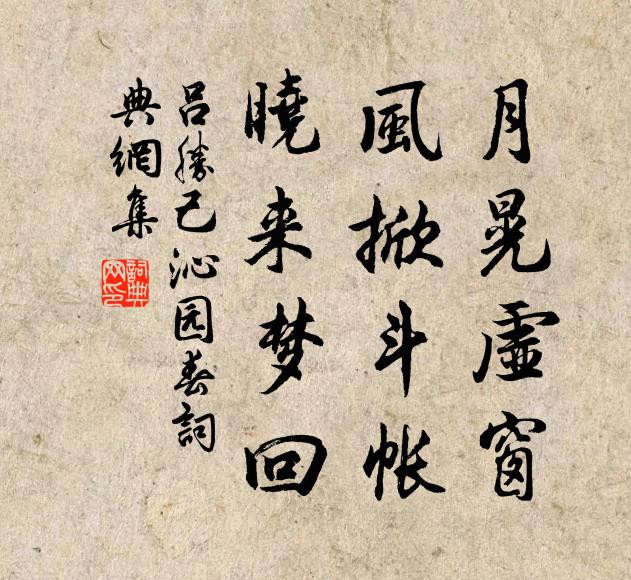 月晃虛窗
風掀斗帐
曉来梦回
吕勝己沁园春詞
典網集
詞典网印